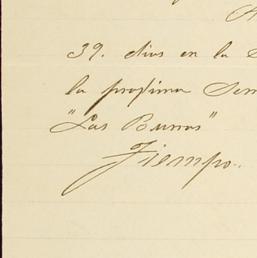 39. dias en la
la proxima Sem
"Las Burras"
Tiempo.